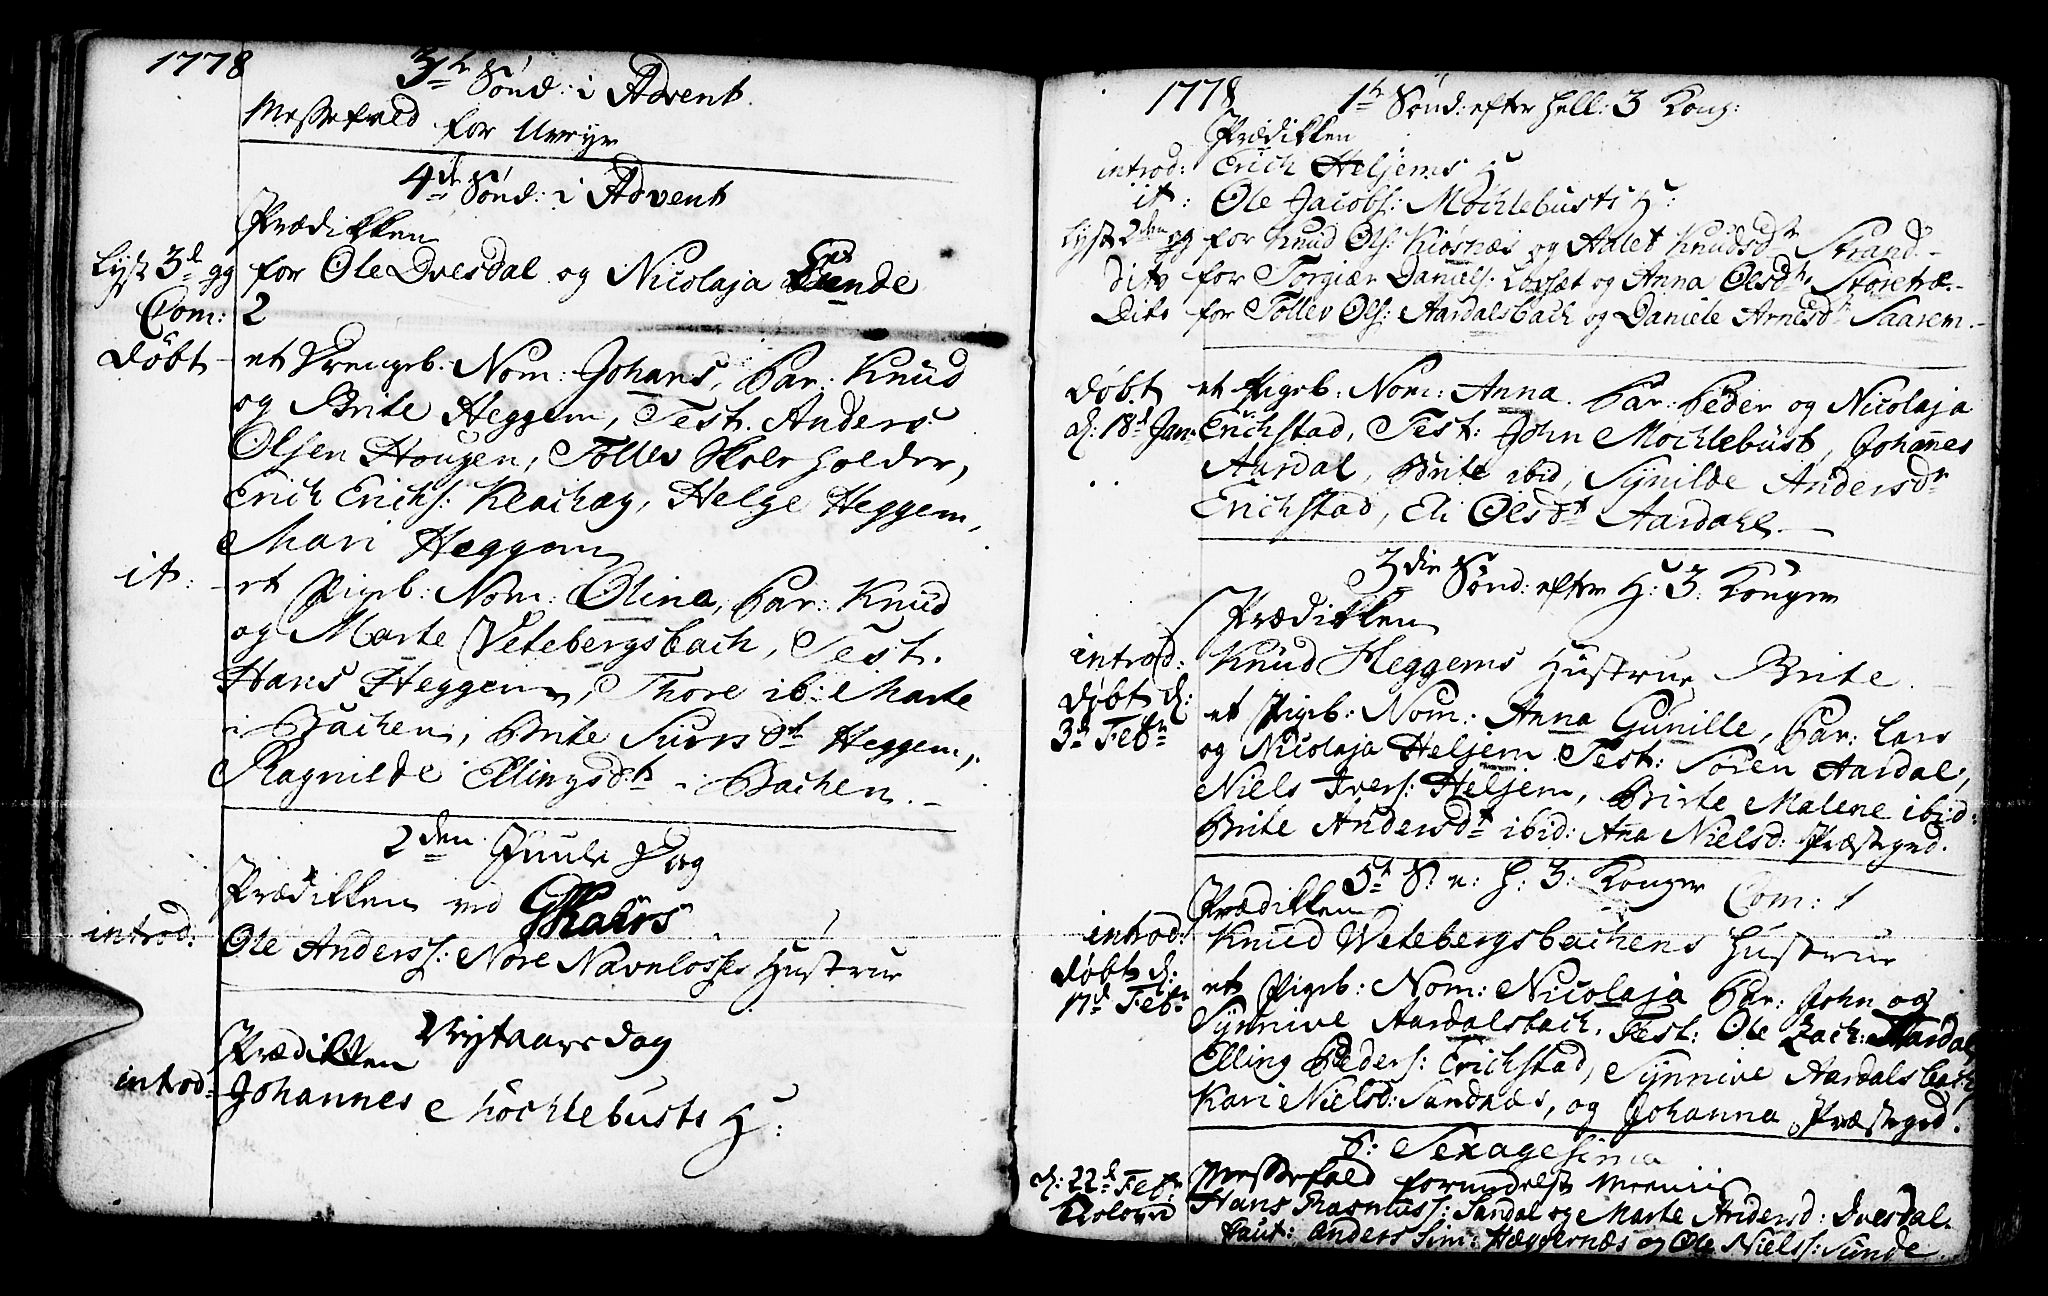 1778
3die Sønd: i Advent.
Messefald for Uveyr
4de Sønd: i Advent
Prædikken
Lyst 3d gg for Ole Dvesdal og Nicolaja Sunde
Com: 2
døbt et Drengeb. Nom: Johans, Par: Knud
og Brite Heggem, Test. Anders
Olsen Hougen, Tollev Skoleholder,
Erich Erichs: Klachag, Helge Heggem,
Mari Heggem
it: et Pigeb: Nom: Olina, Par: Knud
og Marte Vetebergsbach, Test.
Hans Heggem, Thore ib: Marte
i Bachen, Brite Siursdt Heggem,
Ragnilde Ellingsdt i Bachen.
2den Juule Dag
Prædikken ved
introd: Ole Anderss: Nore Navnløsses Hustrue
Nytaarsdag
Prædikken
introd: Johannes Møchlebusts H:
1778
1te Sønd: efter Hell: 3 Kong:
Prædikken
introd: Erich Heljems H
it: Ole Jacobs: Møchlebusts H:
Lyst 2den gg for Knud Ols: Kiøsnæs og Adlet Knudsdt Strand.
dito for Torgiær Daniels: Løvsæt og Anna Olsdt Støretræ.
Dito for Tollev Ols: Aardalsbach og Daniele Arnesdt Saarem.
døbt et Pigeb: Nom: Anna. Par: Peder og Nicolaja
d: 18d Jan: Erichstad, Test: John Møchlebust, Johannes
Aardal, Brite ibid, Synilde Andersdr
Erichstad, Eli Olsdt Aardahl.
3die Sønd: efter H: 3 Konger
Prædikken
introd: Knud Heggems Hustrue Brite
døbt d: et Pigeb: Nom: Anna Gunille, Par: Lars
3d Febr og Nicolaja Heljem Test: Søren Aardal,
Niels Ivers: Heljem, Birte Malene ibid:
Brite Andersdt ibid: Ana Nielsd: Præstegrd.
5te S. e: H: 3: Konger Com: 1
Prædikken
introd: Knud Wetebergsbachens Hustrue
døbt d: et Pigeb: Nom: Nicolaja Par: John og
17d Febr Synnive Aardalsbach, Test: Ole Zach: Aardal
Elling Peders: Erichstad, Synnive Aardalsbach,
Kari Nielsd: Sandnæs, og Johanna Præstegrd.
S: Sexagesima
Messefald formedelst
d: 22d Febr Hans Rasmuss: Sandal og Marte Andersd: Dvesdal.
Trolovd Caut: Anders Sim: Heggernæs og Ole Nielss: Sunde.